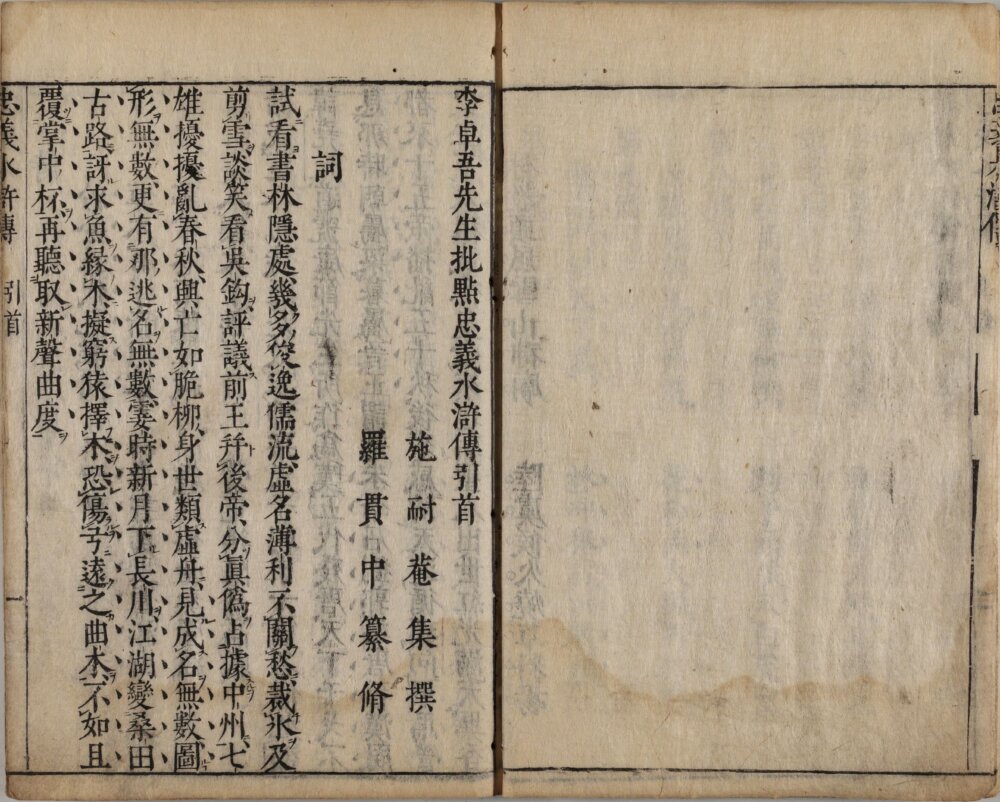 李卓吾先生批點忠義水滸傳引首
施耐菴集撰
羅貫中纂脩
詞
試看書林隱處幾多俊逸儒流虛名薄利不關愁裁氷及
剪雪談笑看吳鈎評議前王幷後帝分眞僞占據中州七
雄擾擾亂春秋興亡如脆柳身世類虛舟見成名無數圖
形無數更有那逃名無數霎時新月下長川江湖變桑田
古路訝求魚緣木擬窮猿擇木恐傷弓遠之曲木不如且
覆掌中杯再聽取新聲曲度
忠義水滸傳 引首 一